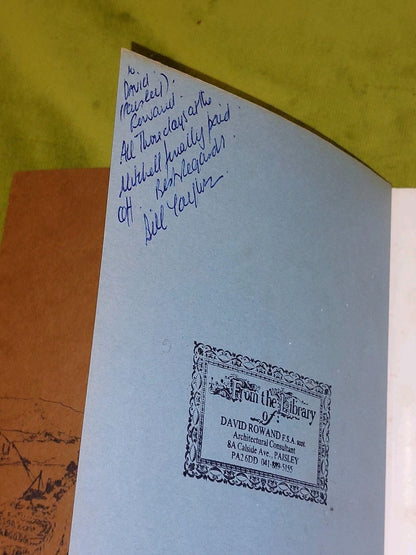 to
David
(Paisley)
Rowand.
All those days at the
Mitchell finally paid
off. Best regards
Bill Taylor.
From the Library
of
DAVID ROWAND F.S.A. scot.
Architectural Consultant
8A Calside Ave., PAISLEY
PA2 6DD 041-889-5155